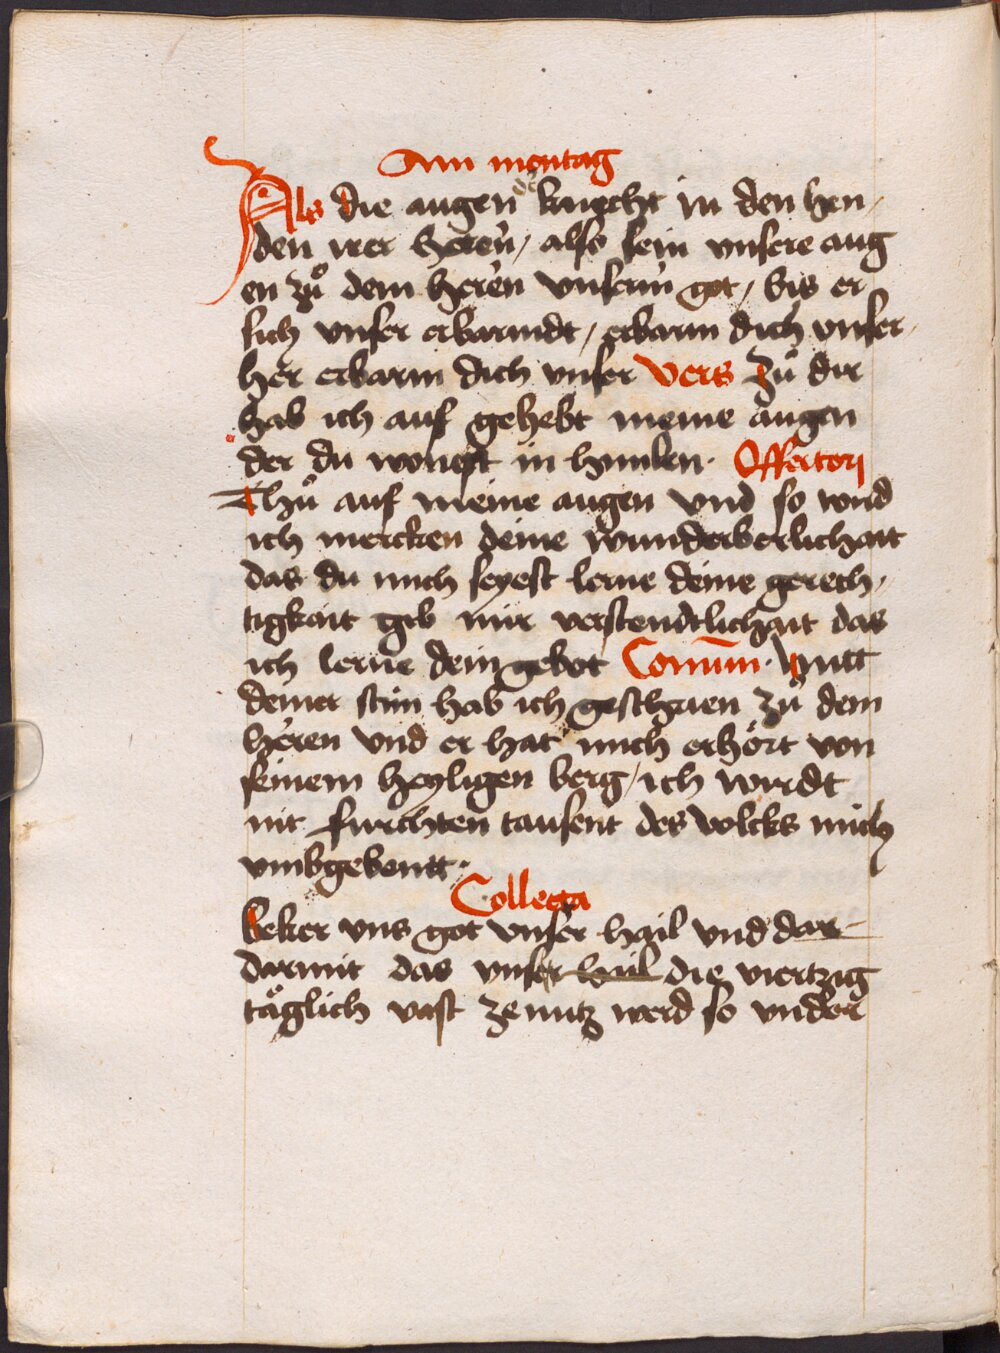 Am montag
Als die augen der knecht in den hen-
den irer heren / also sein unsere aug
en zů dem heren unserm got / bis er
sich unser erbarmdt / erbarm dich unser
her erbarm dich unser Vers Zů dir
hab ich auf gehebt meine augen
der du wonest in himlen. Offertory
Thů auf meine augen und so wird
ich mercken deine wunderberlichait
das du mich seyest lerne deine gerech-
tigkait gib mir verstendtlichait das
ich lerne dein gebot Comum. Mitt
deiner stim hab ich geschrien zů dem
heren und er hat mich erhört von
seinem heyligen berg / ich wirdt
nit furchten tausent des volcks mich
umbgebentt.
Collecta
Beker uns got unser hail und dar
darmit das unser hail die viertzig
täglich vast ze nutz werd so under